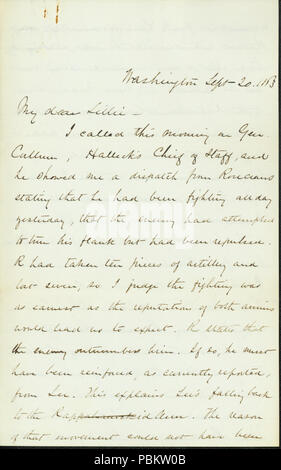 Washington Sept 20. 1863
My dear Lillie -
I called this morning on Gen.
Cullum, Halleck's Chief of Staff, and
he showed me a dispatch from Rosecrans
stating that he had been fighting all day
yesterday, that the enemy had attempted
to turn his flank but had been repulsed.
R had taken ten pieces of artillery and
lost seven, so I judge the fighting was
as earnest as the reputations of both armies
would lead us to expect. R states that
the enemy outnumbers him. If so, he must
have been reinforced, as currently reported,
from Lee. This explains Lee's falling back
to the Rappahannockidan. The reason
of that movement could not have been
alamy
Image ID: PBKW0B
www.alamy.com